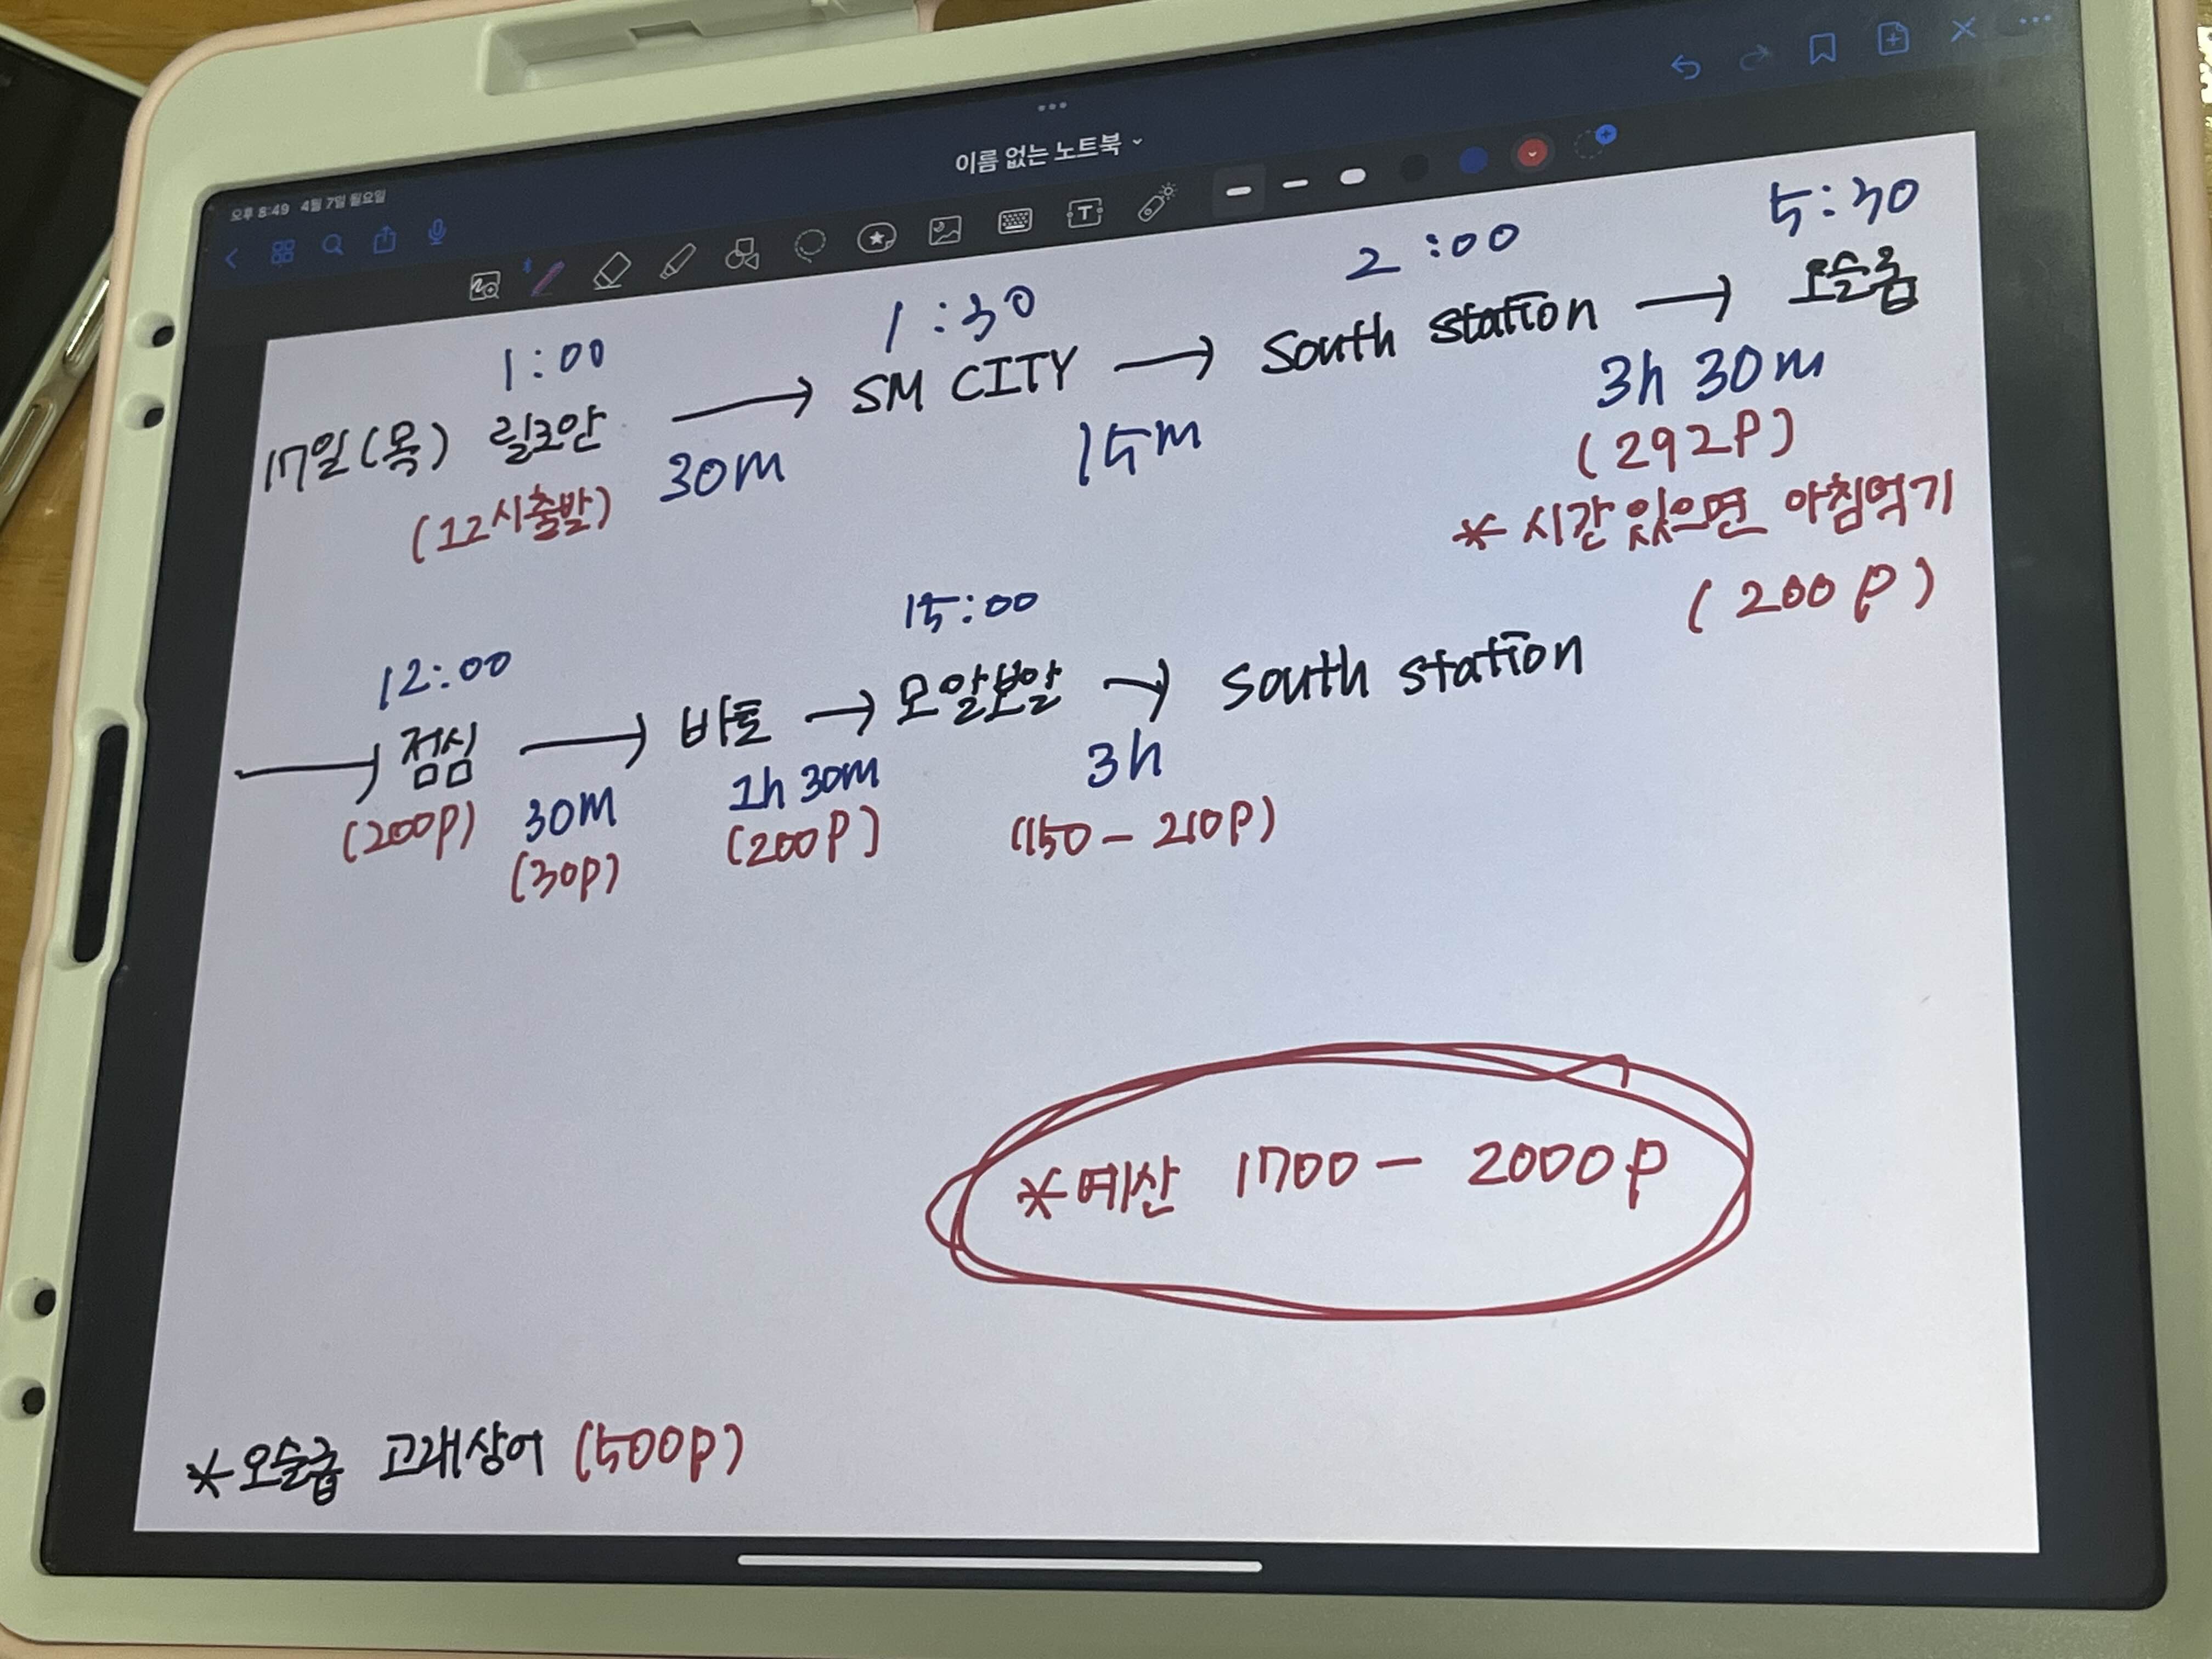 오후 8:49 4월 7일 월요일
이름 없는 노트북
1:00 1:30 2:00 5:30
17일(목) 릴로안 → SM CITY → South station → 오슬롭
30M 15M 3h 30M
(12시출발) (292P)
* 시간 있으면 아침먹기
(200P)
12:00 15:00
→ 점심 → 바토 → 모알보알 → South station
30M 1h 30M 3h
(200P) (30P) (200P) (150 - 210P)
* 예산 1700 - 2000P
* 오슬롭 고래상어 (500P)